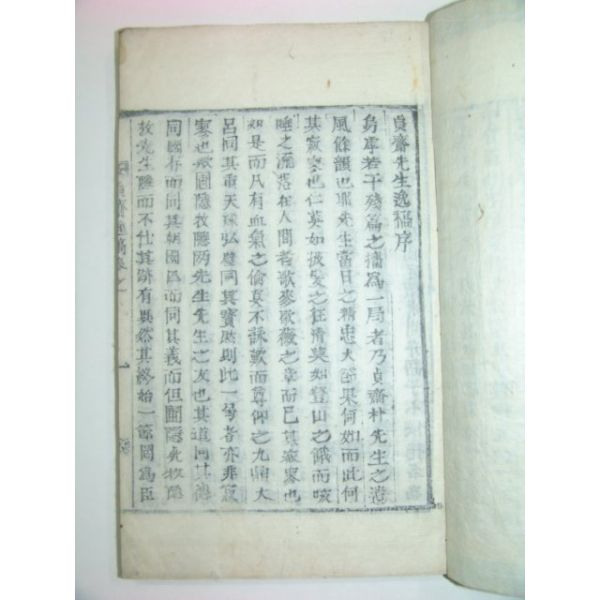 貞齋先生逸稿序
烏虖若干殘篇之㩥為一局者乃貞齋朴先生之遺
風餘韻也耶先生當日之精忠大節果何如而此何
其寂寥也仁莫如披髮之狂淸莫如登山之餓而咳
唾之流落在人間者歌麥歌薇之章而已其寂寥也
如是而凡有血氣之倫莫不詠歎而尊仰之九鼎大
呂同其重天球弘璧同其寶然則此一局者亦非寂
寥也歟圃隱牧隱兩先生先生之友也其道同其德
同國存而同其朝國亡而同其義而但圃隱死牧隱
放先生隱而不仕其跡有異然其終始一節罔為臣
貞齋逸稿卷之一